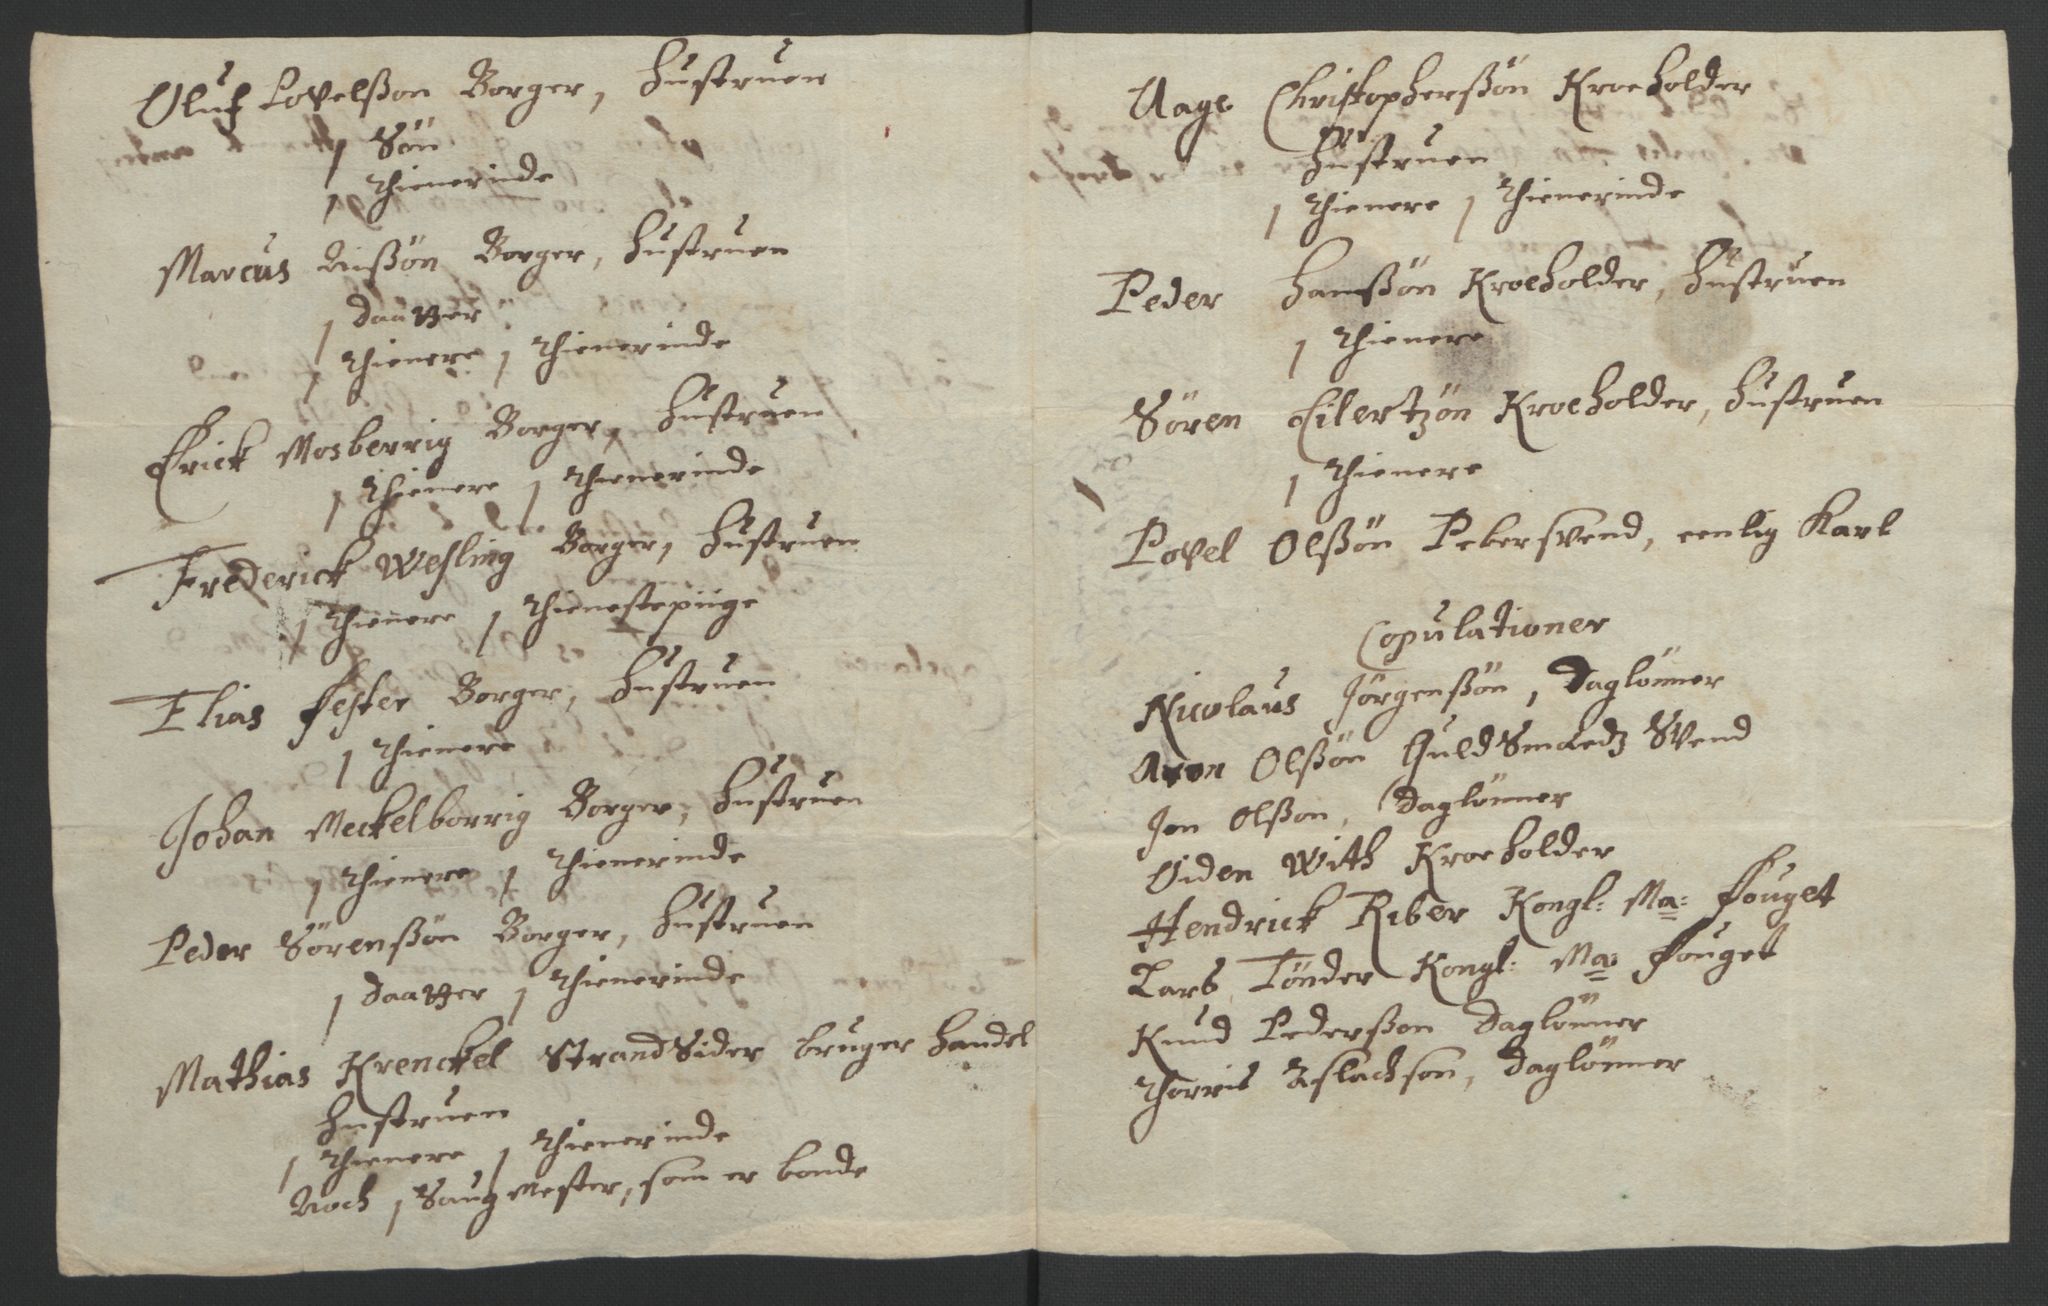 Oluf Povelßon Borger, Hustruen
1 Sön
1 Thienerinde
Marcus Nißön Borger, Hustruen
1 Daatter
1 Thienere 1 Thienerinde
Erick Mosberrig Borger, Hustruen
1 Thienere 1 Thienerinde
Frederick Wesling Borger, Hustruen
1 Thienere 1 Thienestepiige
Elias Fester Borger, Hustruen
1 Thienere
Johan Meckelborrig Borger, Hustruen
1 Thienere 1 Thienerinde
Peder Sörenßön Borger, Hustruen
1 Daatter 1 Thienerinde
Mathias Krenckel StrandSider bruger Handel
Hustruen
1 Thienere 1 Thienerinde
Noch 1 Saugmester, som er bonde
Aage Christopherßön Kroeholder
Hustruen
1 Thienere 1 Thienerinde
Peder Hanßön Kroeholder, Hustruen
1 Thienere
Sören Eilertzön Kroeholder, Hustruen
1 Thienere
Povel Olßön Pebersvend, eenlig Karl
Copulationer
Nicolaus Jörgenßön, Daglönner
Aren Olßön GuldSmædz Svend
Jon Olßon, Daglönner
Oiden With Kroeholder
Hendrick Riber Kongl: Ma: Fouget
Lars Tönder Kongl: Ma: Fouget
Knud Pederßon Daglönner
Thorris Aslachson, Daglönner